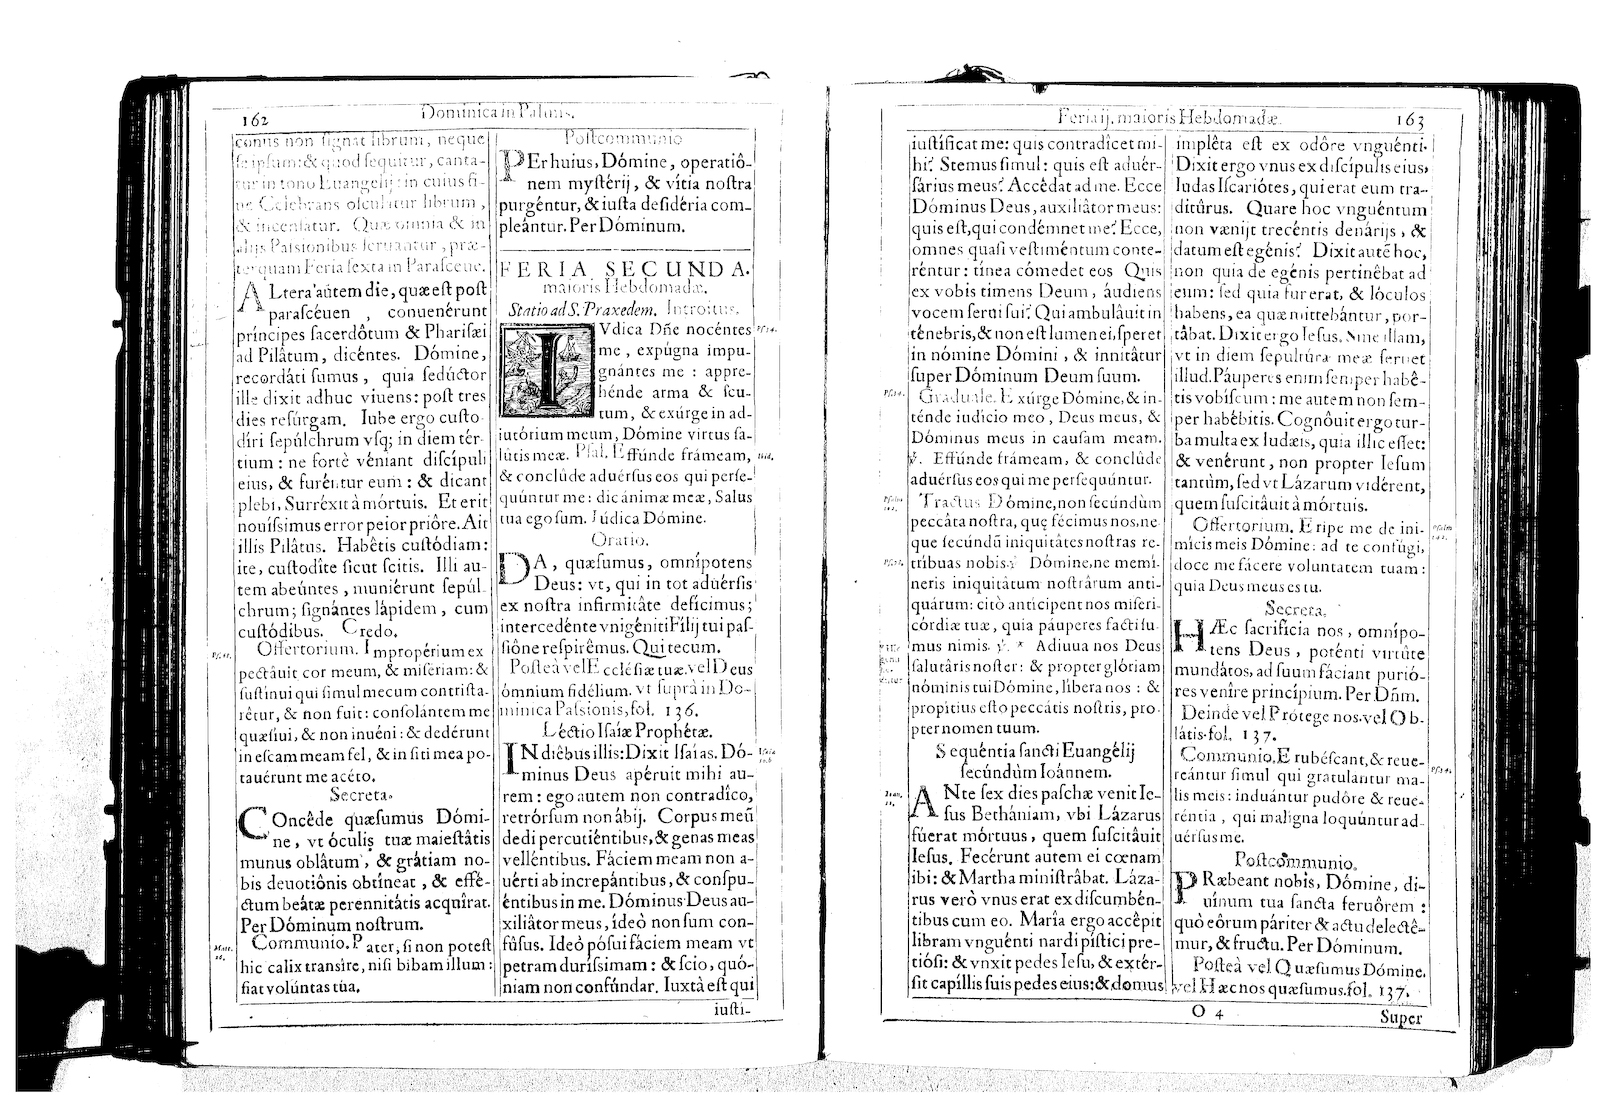 162
Dominica in Palmis.
cornis non ſignat librum, neque
ſeipſum: & quod ſequitur, canta-
tur in tono Euangelij: in cuius fi-
ne Celebrans oſculatur librum,
& incenſatur. Quæ omnia & in
alijs Paſsionibus ſeruantur, præ-
terquam Feria ſexta in Paraſceue.
ALtera autem die, quæ eſt poſt
paraſcéuen, conuenérunt
príncipes ſacerdôtum & Phariſæi
ad Pilâtum, dicéntes. Dómine,
recordáti ſumus, quia ſedúctor
ille dixit adhuc viuens: poſt tres
dies reſúrgam. Iube ergo cuſto-
díri ſepúlchrum vſq; in diem tér-
tium: ne fortè véniant diſcípuli
eius, & furéntur eum: & dicant
plebi, Surréxit à mórtuis. Et erit
nouíſsimus error peior priôre. Ait
illis Pilâtus. Habêtis cuſtódiam:
ite, cuſtodîte ſicut ſcitis. Illi au-
tem abeúntes, muniérunt ſepúl-
chrum; ſignántes lápidem, cum
cuſtódibus. Credo.
Offertorium. Impropérium ex
pectâuit cor meum, & miſériam: &
ſuſtinui qui ſimul mecum contriſta-
rêtur, & non fuit: conſolántem me
quæſiui, & non inuéni: & dedérunt
in eſcam meam fel, & in ſiti mea po-
tauérunt me acéto.
Secreta.
COncêde quæſumus Dómi-
ne, vt óculis tuæ maieſtâtis
munus oblâtum, & grátiam no-
bis deuotiônis obtíneat, & effé-
ctum beátæ perennitátis acquîrat.
Per Dóminum noſtrum.
Communio. Pater, ſi non poteſt
hic calix transîre, niſi bibam illum:
fiat volúntas tua.
Poſtcommunio
PEr huius, Dómine, operatiô-
nem myſtérij, & vítia noſtra
purgéntur, & iuſta deſidéria com-
pleántur. Per Dóminum.
FERIA SECUNDA.
maioris Hebdomadæ.
Statio ad S. Praxedem. Introitus.
IVdica Dñe nocéntes
me, expúgna impu-
gnántes me: appre-
hénde arma & ſcu-
tum, & exúrge in ad-
iutórium meum, Dómine virtus ſa-
lûtis meæ. Pſal. Effúnde frámeam,
& conclûde aduérſus eos qui perſe-
quúntur me: dic ánimæ meæ, Salus
tua ego ſum. Iúdica Dómine.
Oratio.
DA, quæſumus, omnípotens
Deus: vt, qui in tot aduérſis
ex noſtra infirmitâte defícimus;
intercedénte vnigéniti Fílij tui paſ-
ſiône reſpirêmus. Qui tecum.
Poſteà vel Eccléſiæ tuæ. vel Deus
ómnium fidélium. vt ſuprà in Do-
minica Paſsionis, fol. 136.
Léctio Iſaíæ Prophétæ.
IN diêbus illis: Dixit Iſaías. Dó-
minus Deus apéruit mihi au-
rem: ego autem non contradîco,
retrórſum non ábij. Corpus meũ
dedi percutiéntibus, & genas meas
velléntibus. Fáciem meam non a-
uérti ab increpántibus, & conſpu-
éntibus in me. Dóminus Deus au-
xiliâtor meus, ídeò non ſum con-
fûſus. Ideò póſui fáciem meam vt
petram duríſsimam: & ſcio, quó-
niam non confúndar. Iuxtà eſt qui
iuſti-
Feria ij. maioris Hebdomadæ.
163
iuſtíficat me: quis contradîcet mi-
hi? Stemus ſimul: quis eſt aduér-
ſárius meus? Accédat ad me. Ecce
Dóminus Deus, auxiliâtor meus:
quis eſt, qui condémnet me? Ecce,
omnes quaſi veſtiméntum conte-
réntur: tínea cómedet eos Quis
ex vobis timens Deum, áudiens
vocem ſerui ſui? Qui ambulâuit in
ténebris, & non eſt lumen ei, ſperet
in nómine Dómini, & innitâtur
ſuper Dóminum Deum ſuum.
Graduale. Exúrge Dómine, & in-
ténde iudício meo, Deus meus, &
Dóminus meus in cauſam meam.
℣. Effúnde frámeam, & conclûde
aduérſus eos qui me perſequúntur.
Tractus Dómine, non ſecúndùm
peccâta noſtra, quę fécimus nos, ne
que ſecúndũ iniquitâtes noſtras re-
tríbuas nobis. ℣. Dómine, ne memí-
neris iniquitâtum noſtrârum anti-
quárum: citò antícipent nos miſeri-
córdiæ tuæ, quia páuperes facti ſu-
mus nimis. ℣. * Adiuua nos Deus
ſalutâris noſter: & propter glóriam
nóminis tui Dómine, líbera nos: &
propítius eſto peccâtis noſtris, pro-
pter nomen tuum.
Sequéntia ſancti Euangélij
ſecúndùm Ioánnem.
ANte ſex dies paſchæ venit Ie-
ſus Bethániam, vbi Lázarus
fúerat mórtuus, quem ſuſcitâuit
Ieſus. Fecérunt autem ei cœnam
ibi: & Martha miniſtrâbat. Láza-
rus verò vnus erat ex diſcumbén-
tibus cum eo. María ergo accêpit
libram vnguénti nardi píſtici pre-
tióſi: & vnxit pedes Ieſu, & extér-
ſit capíllis ſuis pedes eius: & domus
implêta eſt ex odôre vnguénti.
Dixit ergo vnus ex diſcípulis eius,
Iudas Iſcariótes, qui erat eum tra-
ditûrus. Quare hoc vnguéntum
non vænijt trecéntis denárijs, &
datum eſt egénis? Dixit autẽ hoc,
non quia de egénis pertinêbat ad
eum: ſed quia fur erat, & lóculos
habens, ea quæ mittebántur, por-
tâbat. Dixit ergo Ieſus. Sine illam,
vt in diem ſepultúræ meæ ſeruet
illud. Páuperes enim ſemper habê-
tis vobíſcum: me autem non ſem-
per habêbitis. Cognôuit ergo tur-
ba multa ex Iudæis, quia illic eſſet:
& venérunt, non propter Ieſum
tantúm, ſed vt Lázarum vidérent,
quem ſuſcitâuit à mórtuis.
Offertorium. Eripe me de ini-
mícis meis Dómine: ad te confúgi,
doce me fácere voluntatem tuam:
quia Deus meus es tu.
Secreta.
HÆc ſacrifícia nos, omnípo-
tens Deus, poténti virtûte
mundátos, ad ſuum fáciant purió-
res venîre princípium. Per Dñm.
Deinde vel Prótege nos. vel Ob-
lâtis. fol. 137.
Communio. Erubéſcant, & reue-
reántur ſimul qui gratulantur ma-
lis meis: induántur pudôre & reue-
réntia, qui maligna loquúntur ad-
uérſus me.
Poſtcommunio.
PRæbeant nobis, Dómine, di-
uínum tua ſancta feruôrem:
quò eôrum páriter & actu delectê-
mur, & fructu. Per Dóminum.
Poſteà vel Quæſumus Dómine.
vel Hæc nos quæſumus. fol. 137.
O 4
Super